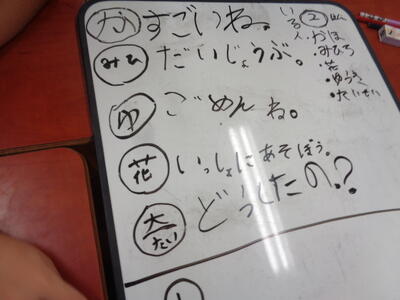 か すごいね。
みひ だいじょうぶ。
ゆ ごめんね。
花 いっしょにあそぼう。
大/たい どうしたの??
2
・かほ
・みひろ
・花
・ゆうき
・たいせい